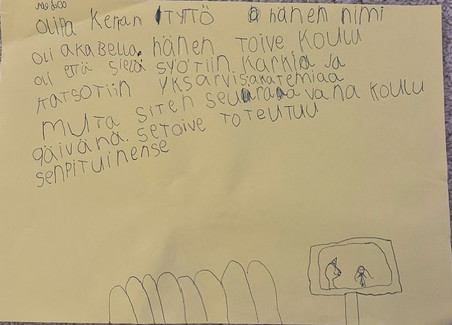 OliPa Kerran TYTTÖ hänen nimi
Oli AKABElla. hänen TOIVE KOULU
Oli ETTÄ Siellä SYÖTIIN KARKIA Ja
KATSOTIIN YKSARVISAKATEMIAA
MUTA SITEN SEURAAVANA KOULU
PÄIVÄNÄ. SETOIVE TOTEUTUU
SENPITUINENSE